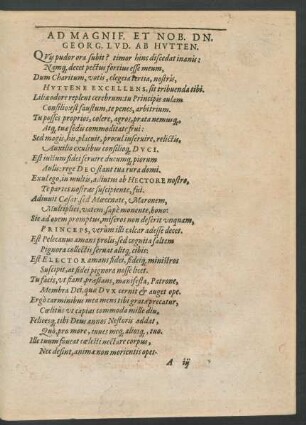 AD MAGNIF. ET NOB. DN.
GEORG. LVD. AB HVTTEN.
QVis pudor ora subit? timor hinc discedat inanis:
Namq; decet pectus fortius esse meum,
Dum Charitum, vatis, elegeia tertia, nostris,
HVTTENE EXCELLENS, sit tribuenda tibi.
repleus cerebrum: tu Principis aulam
Consilio est faustum, te penes, arbitrium.
Tu posces proprios, colere, agros, prata nemusq,
Atq; tua sedis commoditate frui:
Sed magis, his, placuit, procul inseruire, relictis,
Auxilio exulibus consilioq; DVCI.
Est initium fides seruire ducumq; piorum
Aulis: rege DEO stant tua rura domi.
Exul ego, in multis, adiutus ab HECTORE nostro,
Te partes nostras suscipiente, fui.
Adiuuit Cæsar, sed Mæcenate, Maronem,
Multiplici, vatem sæpe monente, bono:
Sic ad opem promptus, miseros non deserit vnquam,
PRINCEPS, verùm illi calcar adesse decet.
Est Pelecanus amans prolis, sed cognita saltem
Pignora collectis seruat alitq; cibis:
Est ELECTOR amans fidei, fideiq; ministros
Suscipit, at fidei pignora nosse licet.
Tu facis, vt fiant præsians, manifesta, Patrone,
Membra Dei, quæ DVX cernit & auget ope.
Ergò carminibus mea mens tibi grata precatur,
Cœlitùs vt capias commoda mille diu,
Felixeq; tibi Deus annos Nestoris addat,
Quâ, pro more, iuues meq; aliosq;, via.
Ille tuum fiuuet cœlesti nectare corpus,
Nec desint, animæ non morientis opes.
A iij